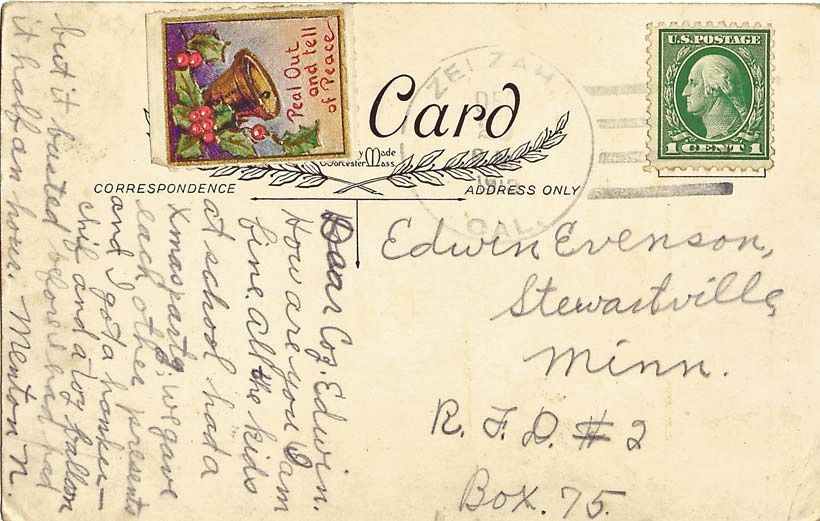 Peal Out
and tell
of Peace
Card
y Made
Worcester Mass.
ZELZAH
CAL.
U.S. POSTAGE
1 CENT 1
CORRESPONDENCE
ADDRESS ONLY
Edwin Evenson,
Stewartville
Minn.
R. F. D. #2
Box. 75.
Dear Coz. Edwin.
How are you I am
fine. All the kids
at school had a
Xmas party, we gave
each other presents
and I got a hanker-
chif and a toy ballon
but it busted before I had had
it half an hour. Menton N.